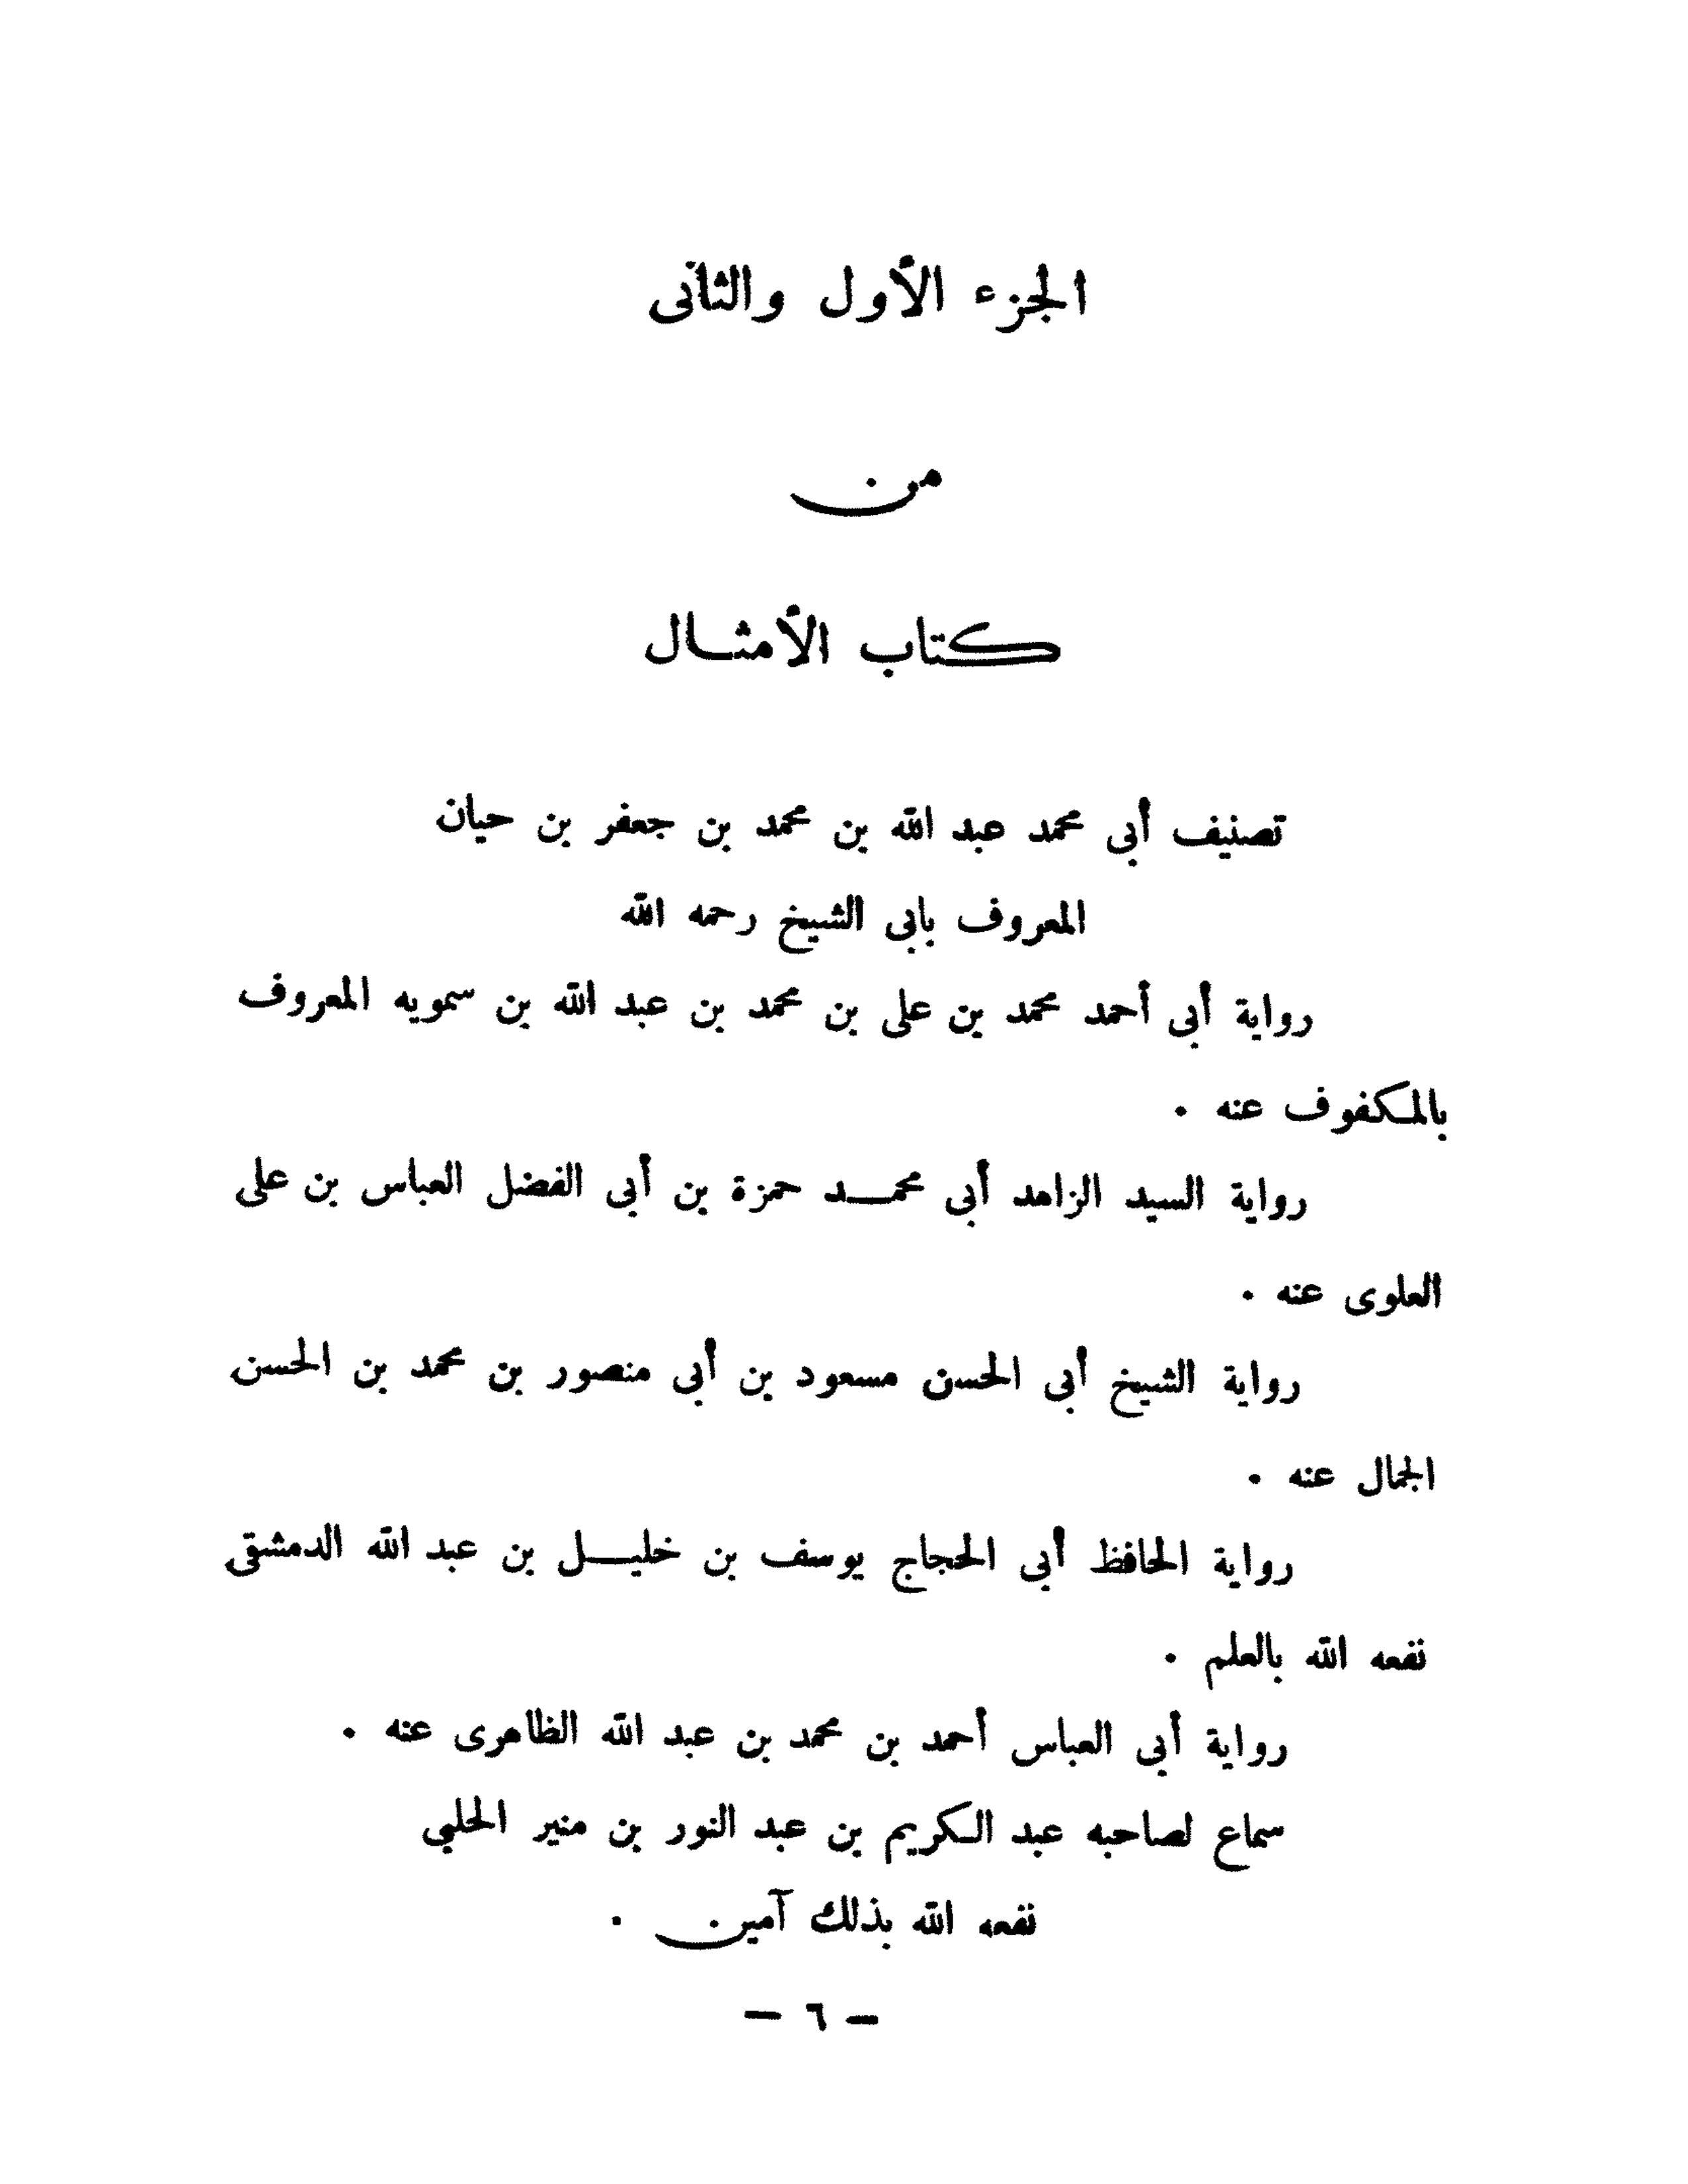 الجزء الأول والثانى
من
كتاب الأمثال
تصنيف أبى محمد عبد الله بن محمد بن جعفر بن حيان
المعروف بابى الشيخ رحمه الله
رواية أبى أحمد محمد بن على بن محمد بن عبد الله بن سمويه المعروف
بالمكفوف عنه .
رواية السيد الزاهد أبى محمد حمزة بن أبى الفضل العباس بن على
العلوى عنه .
رواية الشيخ أبى الحسن مسعود بن أبى منصور بن محمد بن الحسن
الجمال عنه .
رواية الحافظ أبى الحجاج يوسف بن خليل بن عبد الله الدمشقى
نفعه الله بالعلم .
رواية أبى العباس أحمد بن محمد بن عبد الله الظاهرى عنه .
سماع لصاحبه عبد الكريم بن عبد النور بن منير الحلبي
نفعه الله بذلك آمين .
— ٦ —